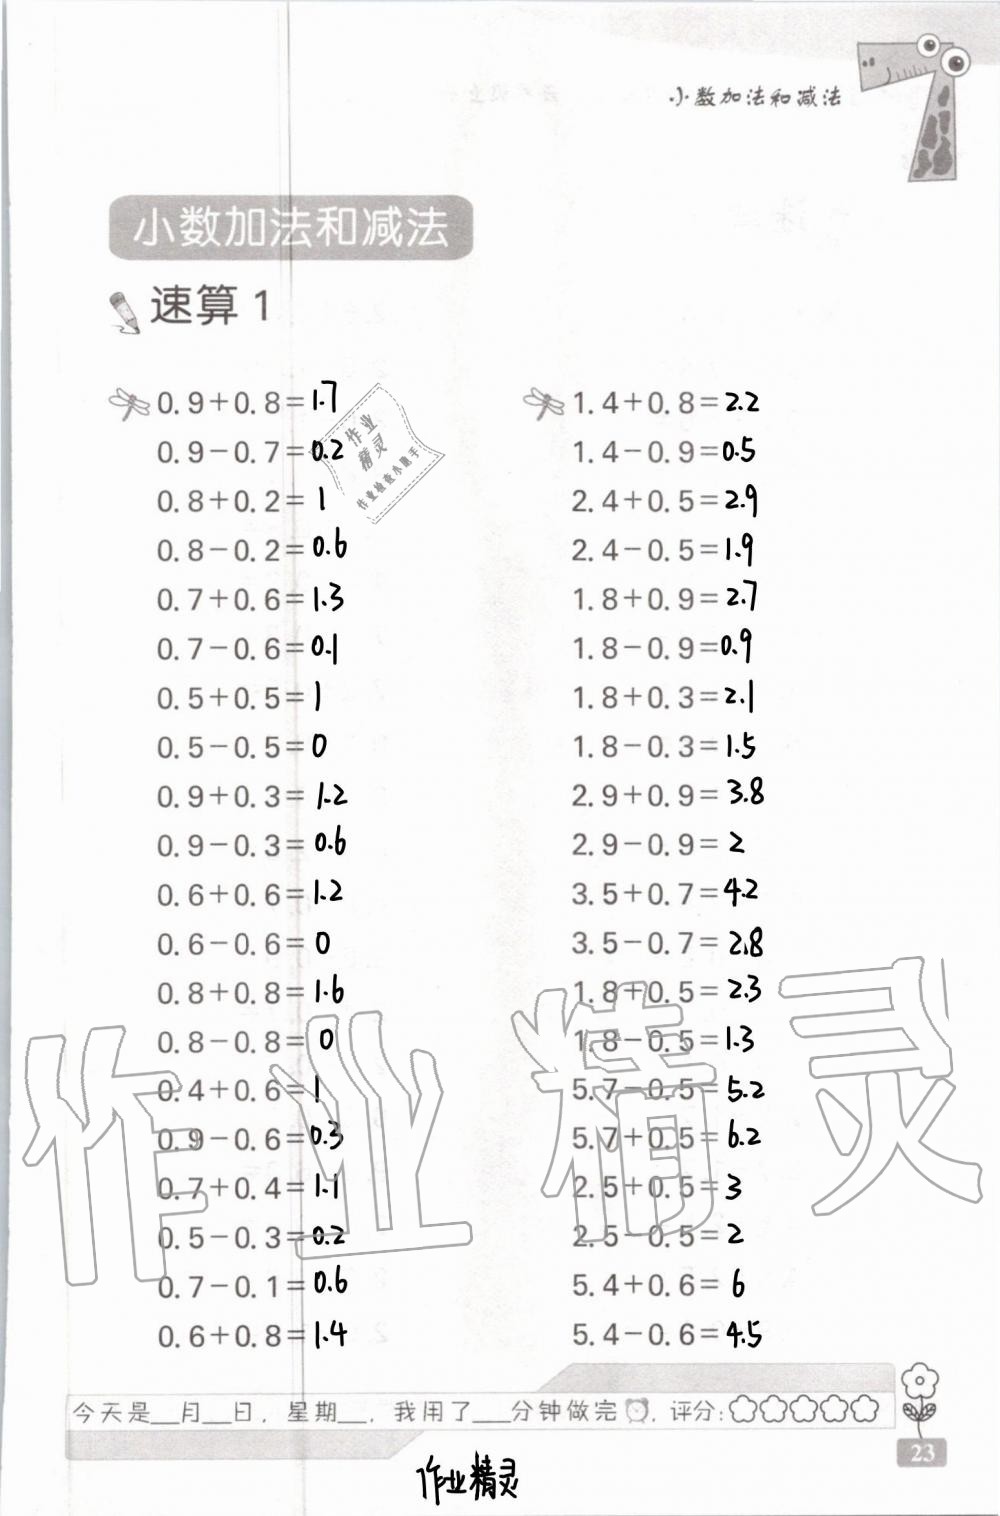 小数加法和减法
小数加法和减法
速算1
0.9+0.8=1.7
0.9-0.7=0.2
0.8+0.2=1
0.8-0.2=0.6
0.7+0.6=1.3
0.7-0.6=0.1
0.5+0.5=1
0.5-0.5=0
0.9+0.3=1.2
0.9-0.3=0.6
0.6+0.6=1.2
0.6-0.6=0
0.8+0.8=1.6
0.8-0.8=0
0.4+0.6=1
0.9-0.6=0.3
0.7+0.4=1.1
0.5-0.3=0.2
0.7-0.1=0.6
0.6+0.8=1.4
1.4+0.8=2.2
1.4-0.9=0.5
2.4+0.5=2.9
2.4-0.5=1.9
1.8+0.9=2.7
1.8-0.9=0.9
1.8+0.3=2.1
1.8-0.3=1.5
2.9+0.9=3.8
2.9-0.9=2
3.5+0.7=4.2
3.5-0.7=2.8
1.8+0.5=2.3
1.8-0.5=1.3
5.7-0.5=5.2
5.7+0.5=6.2
2.5+0.5=3
2.5-0.5=2
5.4+0.6=6
5.4-0.6=4.5
作业
精灵
作业检查小助手
作业精灵
今天是__月__日，星期__，我用了___分钟做完，评分：
23
作业精灵